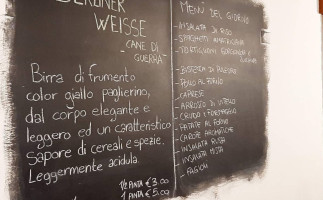 BERLINER
WEISSE
- CANE DI
GUERRA -
Birra di frumento
color giallo paglierino,
dal corpo elegante e
leggero ed un caratteristico
Sapore di cereali e spezie.
Leggermente acidula.
1/2 PINTA €3.00
1 PINTA €5.00
MENÙ DEL GIORNO
- INSALATA DI RISO
- SPAGHETTI
- TORTIGLIONI
- BISTECCA DI
- POLLO AL FORNO
- CAPRESE
- ARROSTO DI VITELLO
- CRUDO E FORMAGGIO
- PATATE AL FORNO
- CAROTE AROMATICHE
- INSALATA RUSSA
- INSALATA MISTA
- FAGIOLI